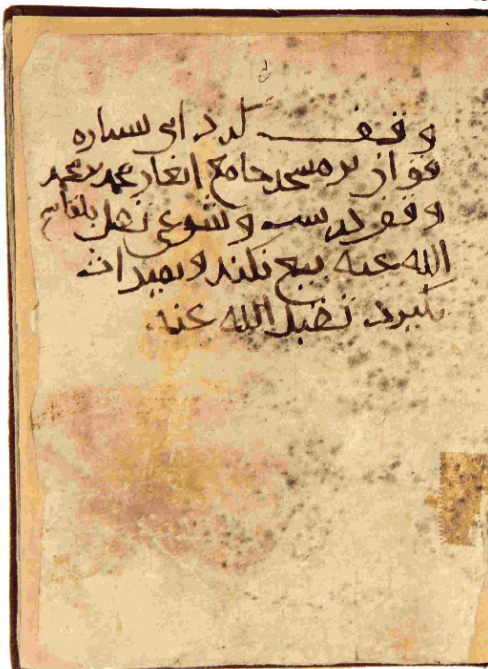 وقف کرد ای سپاره
قران بر مسجد جامع محمد بن محمد
وقف درست و شرعی تقبل
الله عنه بیع نکند و بمیراث
نگیرد تقبل الله عنه